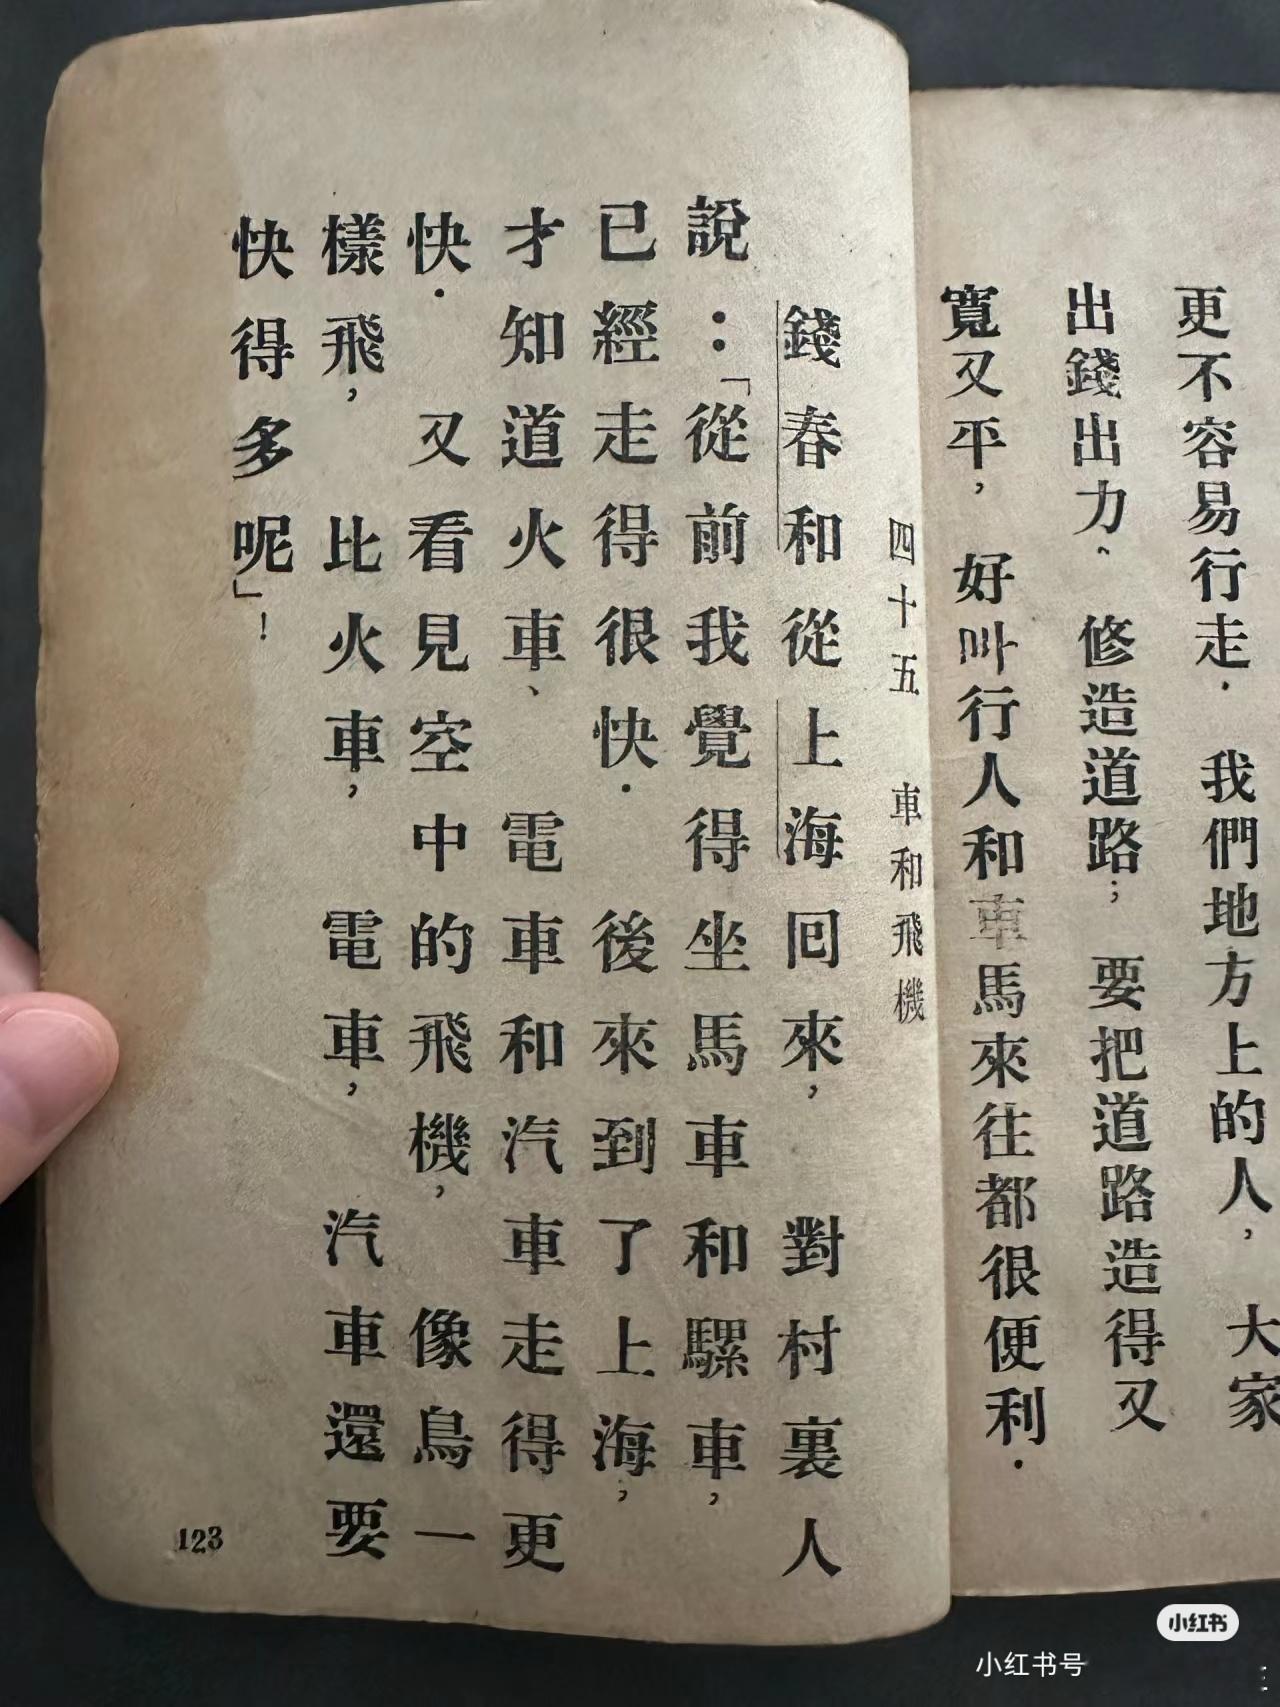 更不容易行走．我們地方上的人，大家
出錢出力、修造道路；要把道路造得又
寬又平，好叫行人和車馬來往都很便利．
四十五　車和飛機
錢春和從上海囘來，對村裏人
說：「從前我覺得坐馬車和騾車，
已經走得很快．後來到了上海，
才知道火車、電車和汽車走得更
快．又看見空中的飛機，像鳥一
樣飛，比火車，電車，汽車還要
快得多呢」！
123
小红书
小红书号